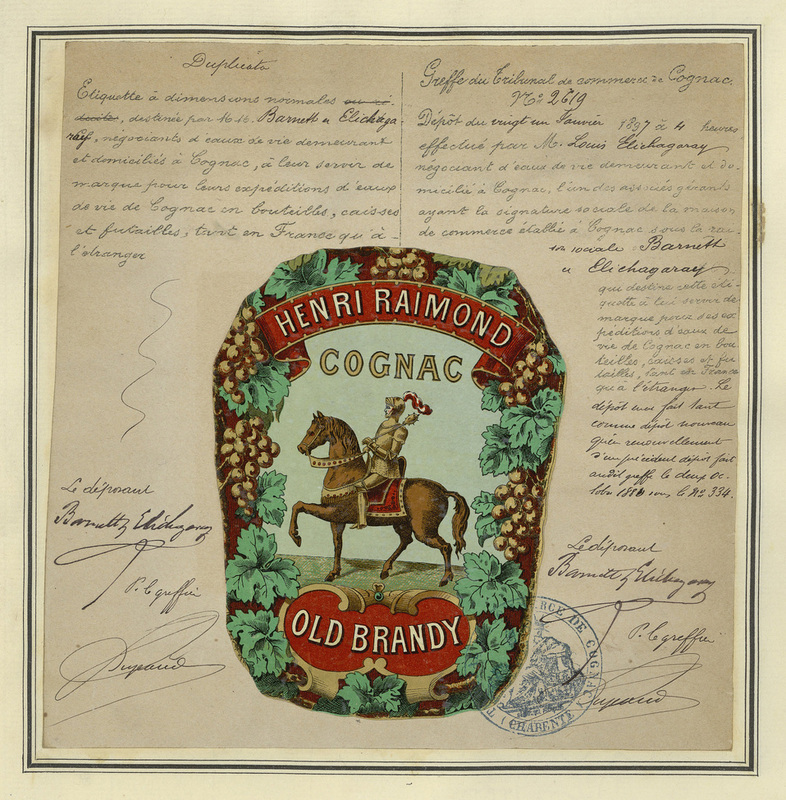 Duplicata
Etiquette à dimensions normales ou ré-
duites, destinée par M.M. Barnett et Elichaga-
ray, négociants d'eaux de vie demeurant
et domiciliés à Cognac, à leur servir de
marque pour leurs expéditions d'eaux
de vie de Cognac en bouteilles, caisses
et futailles, tant en France qu'à
l'étranger
Le déposant
Barnett & Elichagaray
P. le greffier
Greffe du Tribunal de commerce de Cognac.
No 2619
Dépôt du vingt un Janvier 1897 à 4 heures
effectué par M. Louis Elichagaray
négociant d'eaux de vie demeurant et do-
micilié à Cognac, l'un des associés gérants
ayant la signature sociale de la maison
de commerce établie à Cognac sous la rai-
son sociale Barnett
et Elichagaray
qui destine cette éti-
quette à lui servir de
marque pour ses ex
péditions d'eaux de
vie de Cognac en bou
teilles, caisses et fu
tailles, tant en France
qu'à l'étranger. Le
dépôt est fait tant
comme dépôt nouveau
qu'en renouvellement
d'un précédent dépôt fait
audit greffe le deux oc-
tobre sous le No 334.
Le déposant
Barnett & Elichagaray
P. le greffier
HENRI RAIMOND
COGNAC
OLD BRANDY
COMMERCE DE COGNAC
(CHARENTE)